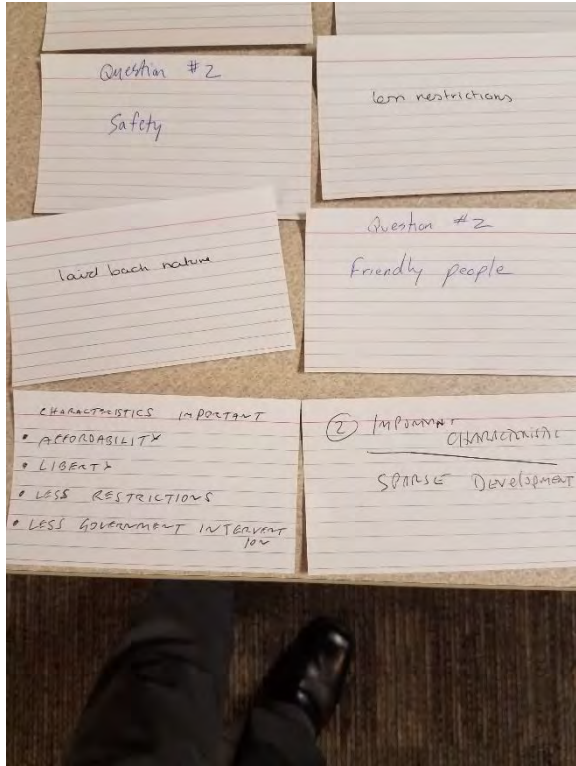 Question #2
Safety
less restrictions
laid back nature
Question #2
Friendly people
CHARACTERISTICS IMPORTANT
• AFFORDABILITY
• LIBERTY
• LESS RESTRICTIONS
• LESS GOVERNMENT INTERVENT
ION
2 IMPORTANT
CHARACTERISTIC
SPARSE DEVELOPMENT